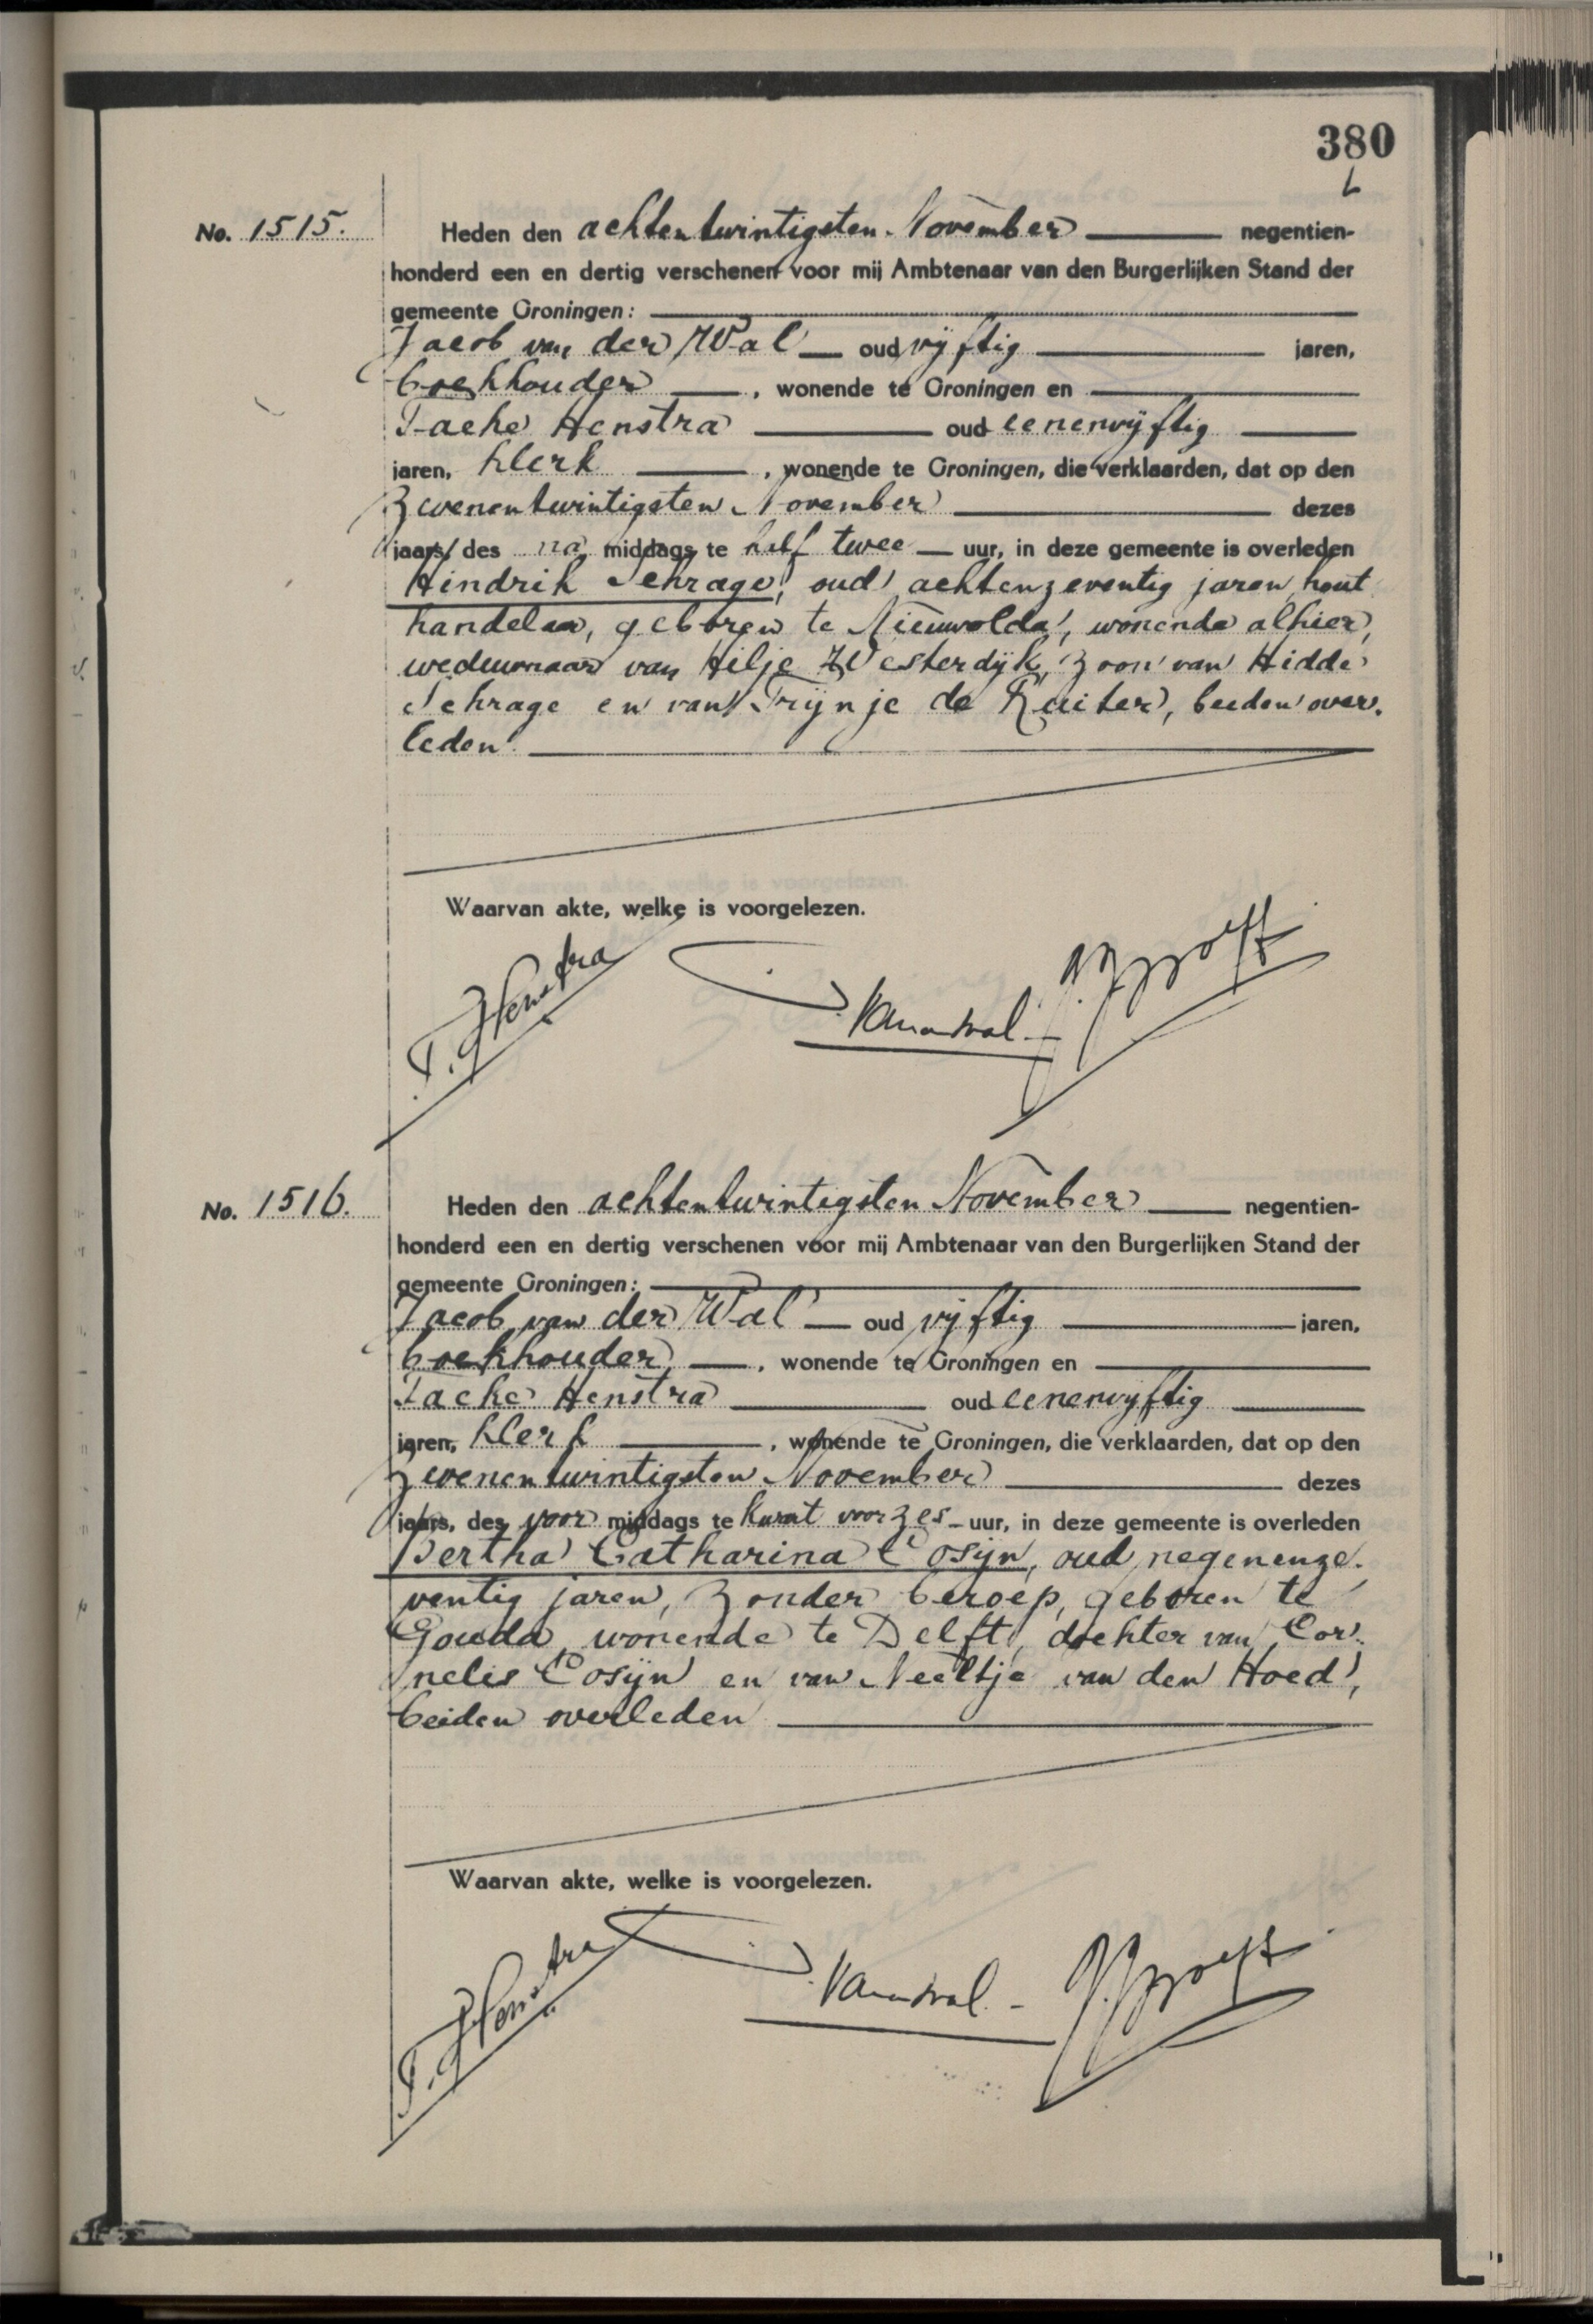 380
No. 1515.
Heden den achtentwintigsten November negentien-
honderd een en dertig verschenen voor mij Ambtenaar van den Burgerlijken Stand der
gemeente Groningen:
Jacob van der Wal oud vijftig jaren,
boekhouder, wonende te Groningen en
Taeke Henstra oud eenenvijftig
jaren, klerk, wonende te Groningen, die verklaarden, dat op den
zevenentwintigsten November dezes
jaars, des na middags te half twee uur, in deze gemeente is overleden
Hindrik Schrage, oud achtenzeventig jaren, hout
handelaar, geboren te Nieuwolda, wonende alhier,
weduwnaar van Hilje Westerdijk, zoon van Hidde
Schrage en van Trijnje de Ruiter, beiden over-
leden.
Waarvan akte, welke is voorgelezen.
T. Henstra
J. van der Wal
No. 1516.
Heden den achtentwintigsten November negentien-
honderd een en dertig verschenen voor mij Ambtenaar van den Burgerlijken Stand der
gemeente Groningen:
Jacob van der Wal oud vijftig jaren,
boekhouder, wonende te Groningen en
Taeke Henstra oud eenenvijftig
jaren, klerk, wonende te Groningen, die verklaarden, dat op den
zevenentwintigsten November dezes
jaars, des voor middags te kwart voor zes uur, in deze gemeente is overleden
Bertha Catharina Cosijn, oud negenenze-
ventig jaren, zonder beroep, geboren te
Gouda, wonende te Delft, dochter van Cor-
nelis Cosijn en van Neeltje van den Hoed,
beiden overleden
Waarvan akte, welke is voorgelezen.
T. Henstra
J. van der Wal